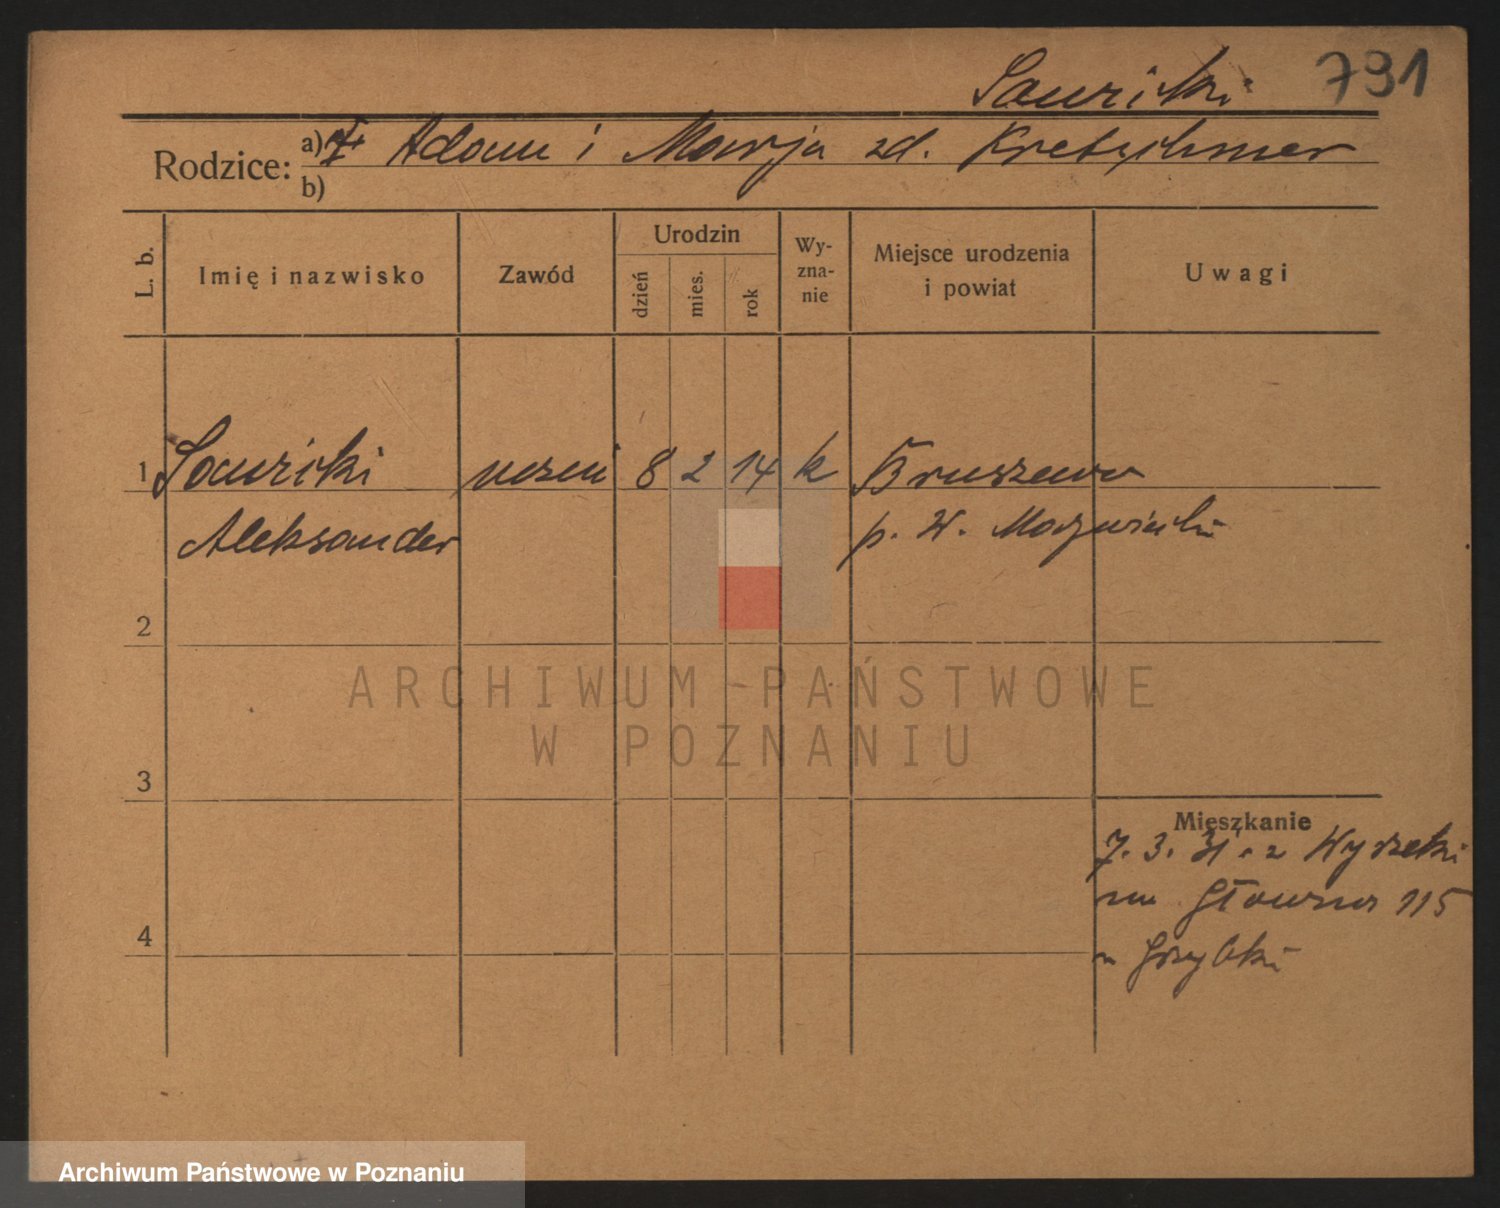 Sawicki 791
Rodzice: a) Adam i Marja zd. Kretschmer
b)
L. b. Imię i nazwisko Zawód Urodzin dzień mies. rok Wyzna-nie Miejsce urodzenia i powiat Uwagi
1 Sawicki uczeń 8 2 14 k Bruszewo
Aleksander p. W. Mazowiecki
2
3
Mieszkanie
7. 3. 31. z Wyrzeki
na Główna 115
4
u Grzybki
ARCHIWUM PAŃSTWOWE
W POZNANIU
Archiwum Państwowe w Poznaniu